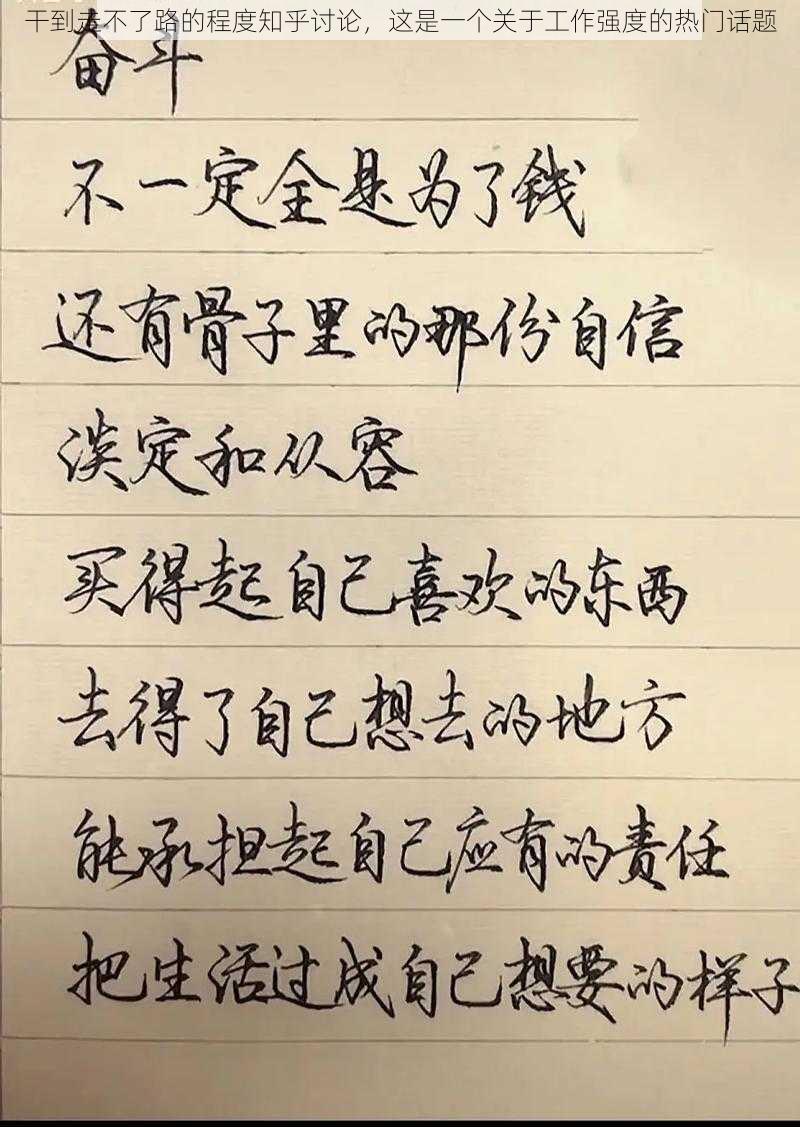 干到走不了路的程度知乎讨论，这是一个关于工作强度的热门话题
奋斗
不一定全是为了钱
还有骨子里的那份自信
淡定和从容
买得起自己喜欢的东西
去得了自己想去的地方
能承担起自己应有的责任
把生活过成自己想要的样子